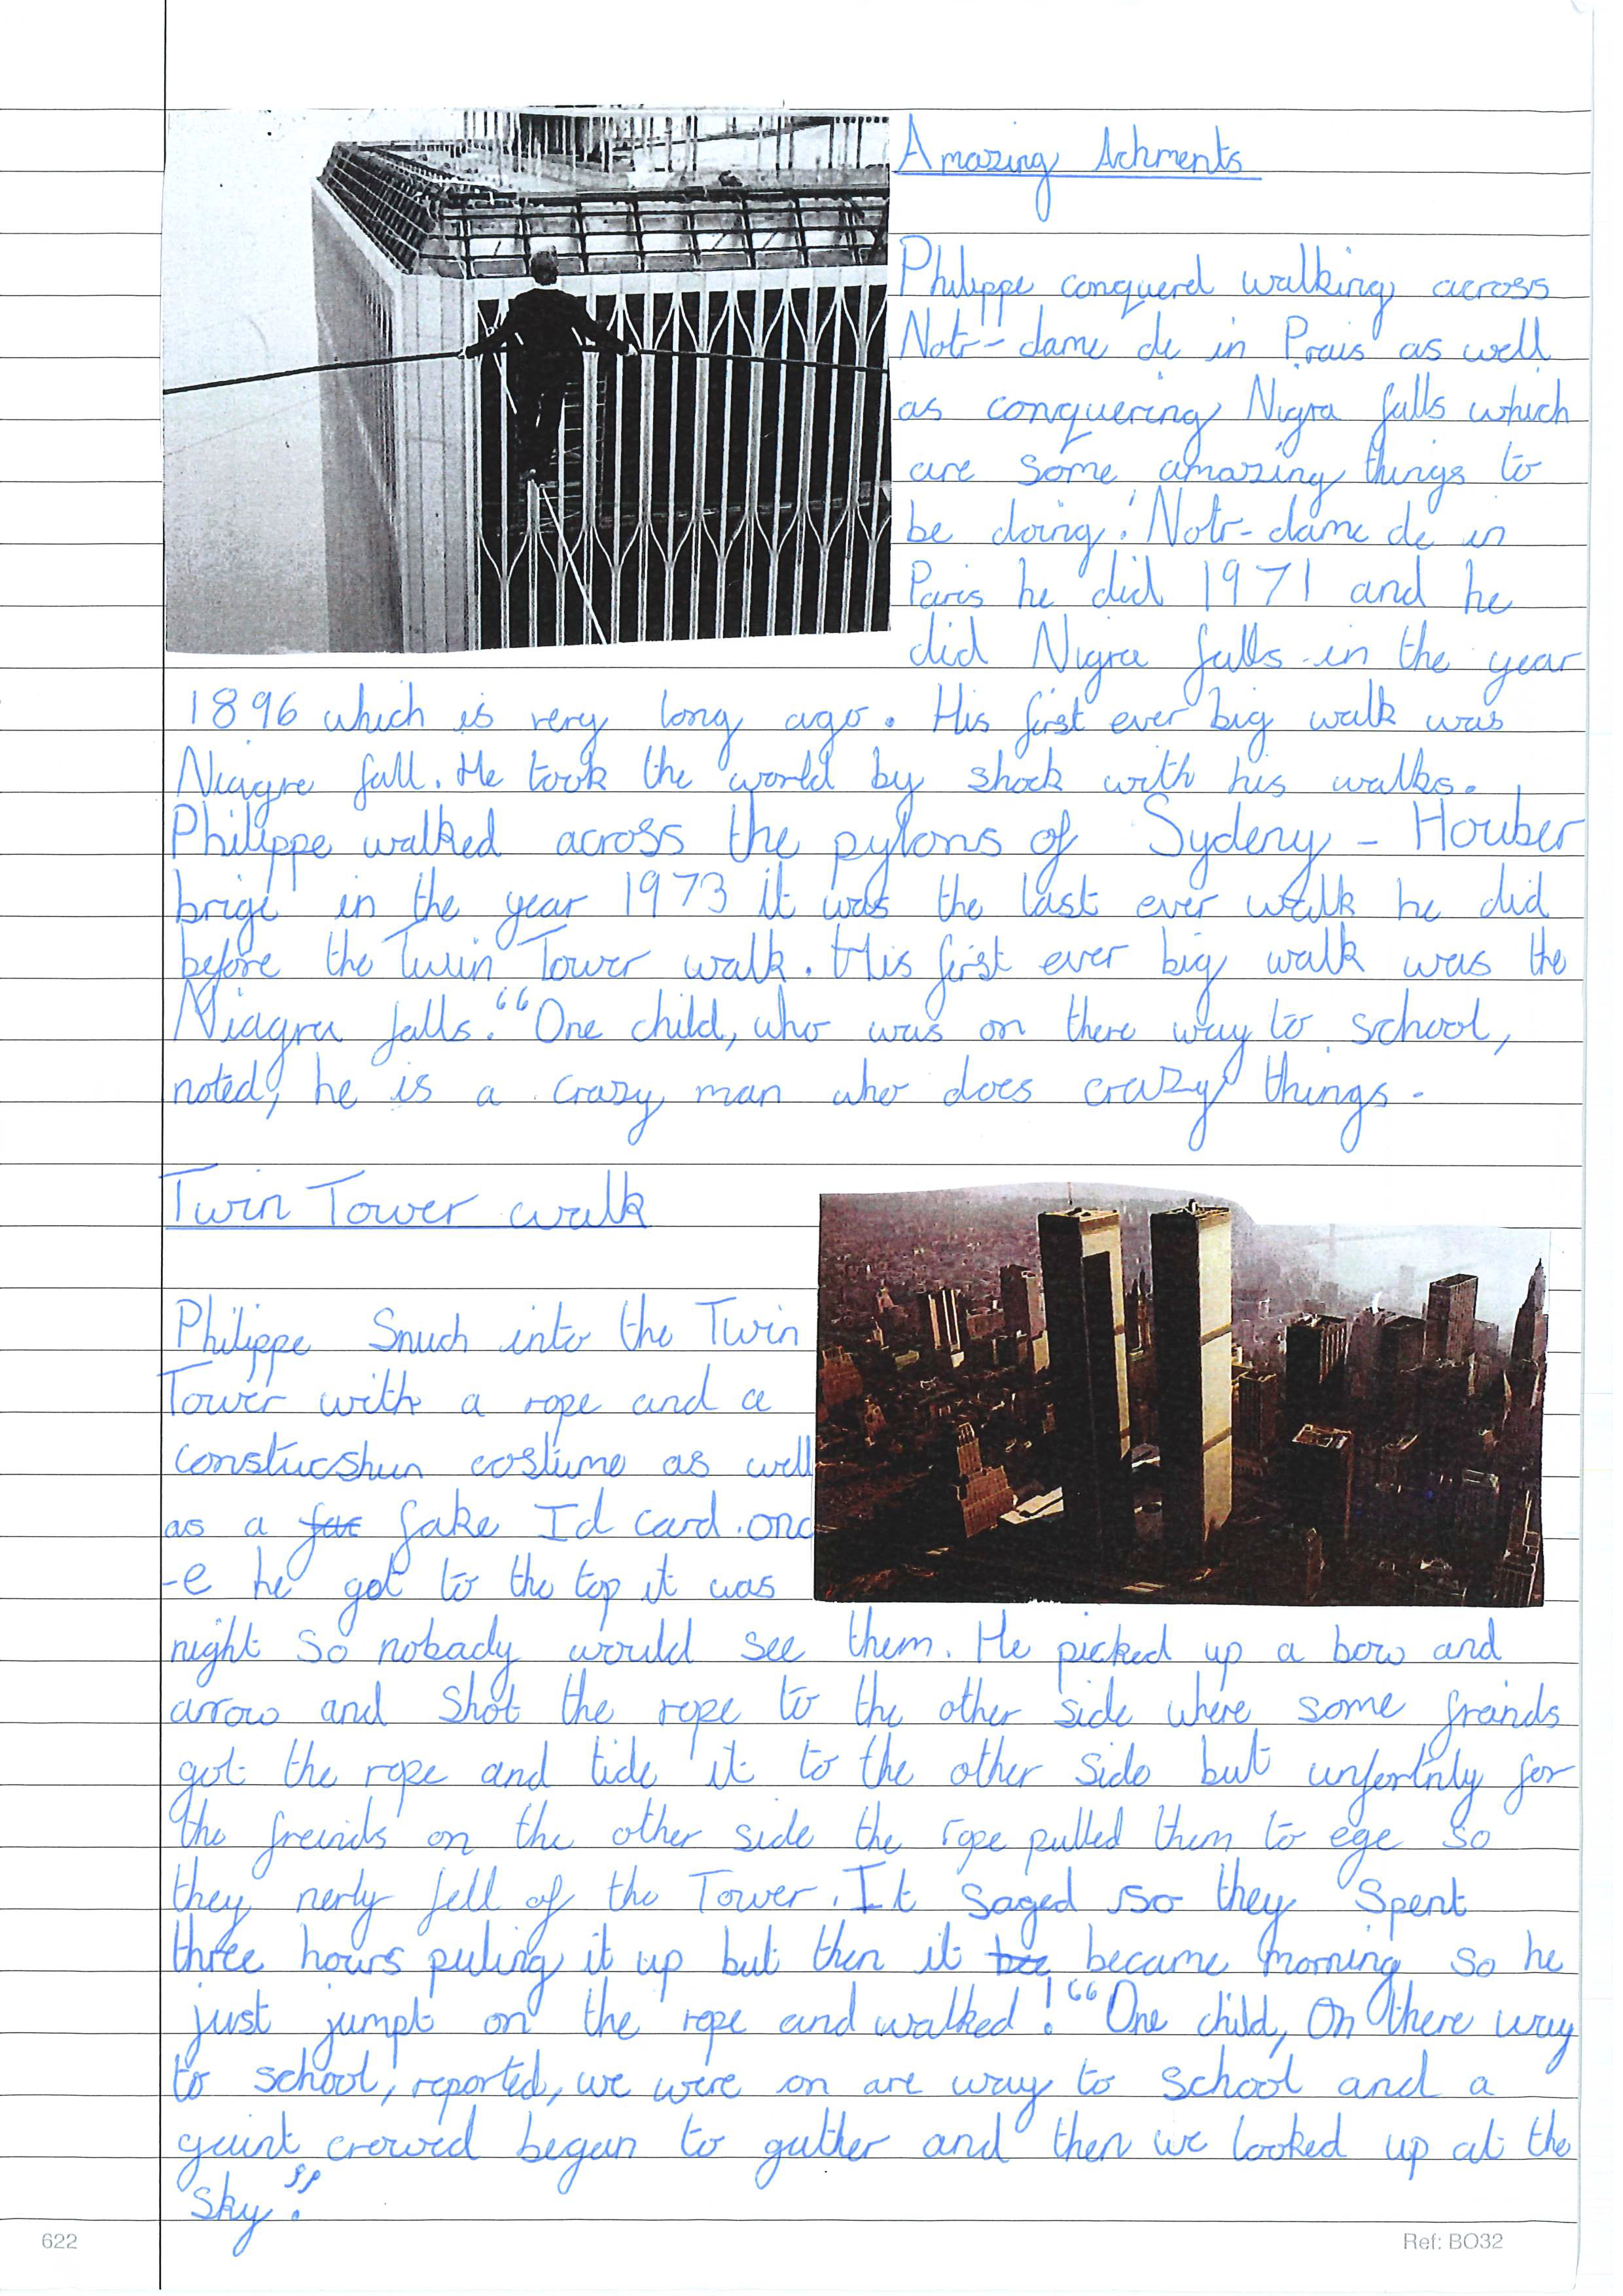 Amazing Achments
Philippe conquerd walking across
Notr-dame de in Prais as well
as conquering Nigra falls which
are some amazing things to
be doing! Notr-dame de in
Paris he did 1971 and he
did Nigra falls in the year
1896 which is very long ago. His first ever big walk was
Niagre fall. He took the world by shock with his walks.
Philippe walked across the pylons of Sydeny - Houber
brige in the year 1973 it was the last ever walk he did
before the Twin Tower walk. His first ever big walk was the
Niagra falls. “One child, who was on there way to school,
noted, he is a crazy man who does crazy things.
Twin Tower walk
Philippe Snuch into the Twin
Tower with a rope and a
constucshun costume as well
as a fake Id card. onc
-e he got to the top it was
night so nobady would see them. He picked up a bow and
arrow and shot the rope to the other side where some freinds
got the rope and tide it to the other side but unfortnly for
the freinds on the other side the rope pulled them to ege so
they nerly fell of the Tower. It saged so they spent
three hours puling it up but then it became morning so he
just jumpt on the rope and walked! “One child, On there way
to school, reported, we were on are way to school and a
gaint crowed began to gather and then we looked up at the
sky.”
622
Ref: BO32